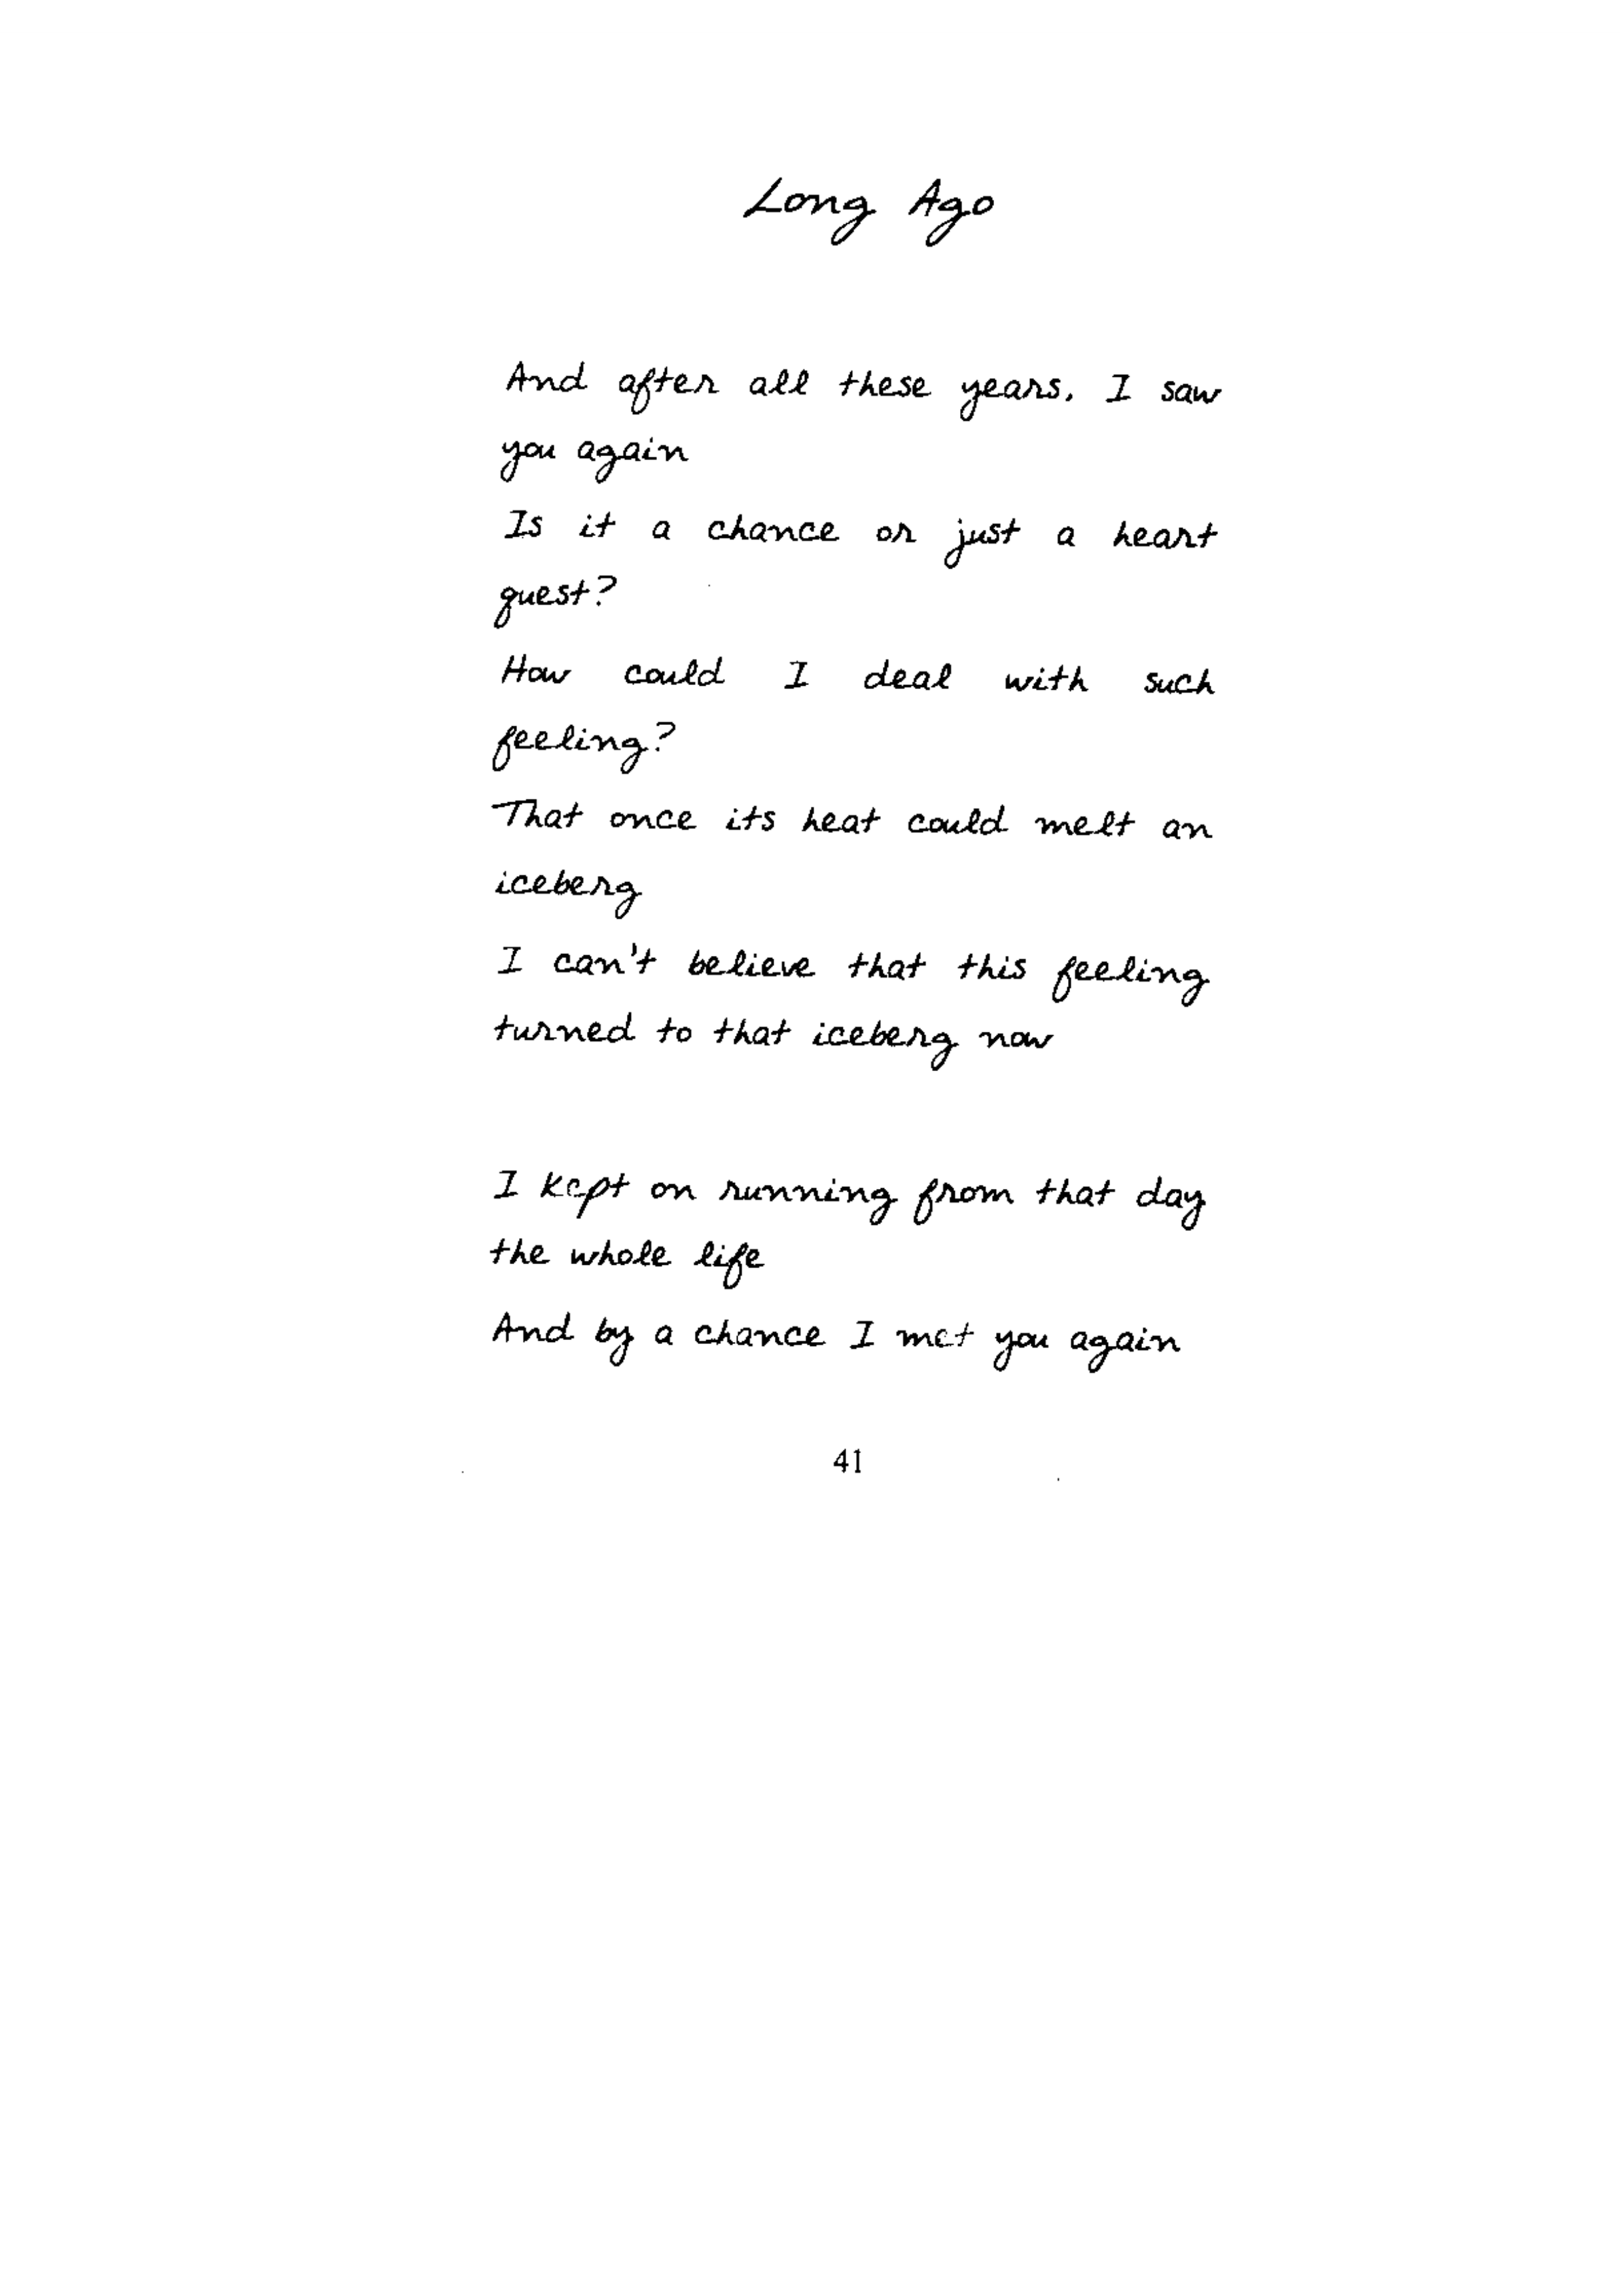 Long Ago
And after all these years, I saw
you again
Is it a chance or just a heart
guest?
How could I deal with such
feeling?
That once its heat could melt an
iceberg
I can't believe that this feeling
turned to that iceberg now
I kept on running from that day
the whole life
And by a chance I met you again
41